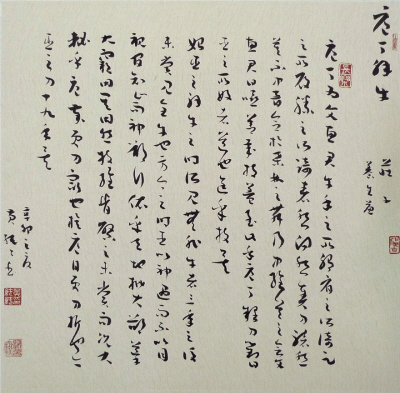 庖丁解牛
莊子
庖丁為文惠君解牛手之所觸肩之所倚足
之所履膝之所踦砉然嚮然奏刀騞然
莫不中音合於桑林之舞乃中經首之會文
惠君曰嘻善哉技蓋至此乎庖丁釋刀對曰
臣之所好者道也進乎技矣
始臣之解牛之時所見無非牛者三年之後
未嘗見全牛也方今之時臣以神遇而不以目
視官知止而神欲行依乎天理批大郤導
大窾因其固然技經肯綮之未嘗而況大
軱乎良庖歲更刀割也族庖月更刀折也今
臣之刀十九年矣
辛卯之夏